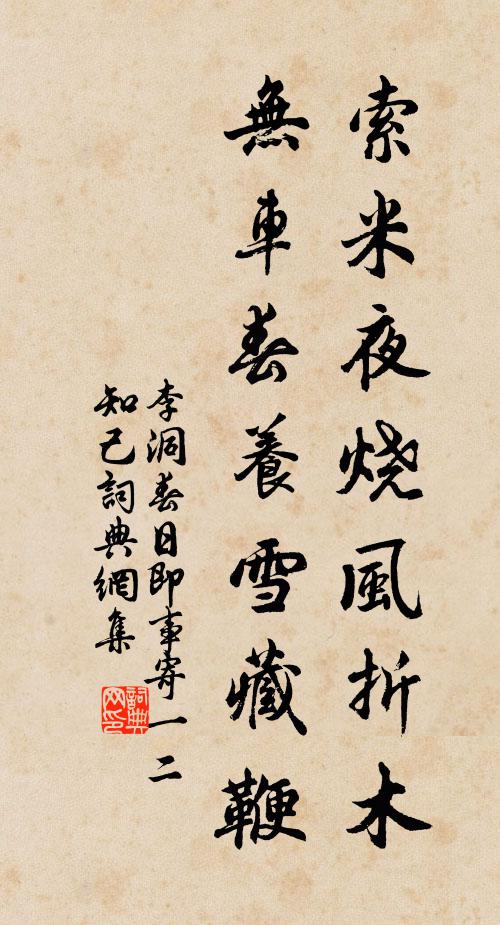 索米夜烧風折木
無車春養雪藏鞭
李洞春日即事寄一二
知己詞典網集
詞典网印